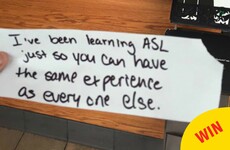 I've been learning ASL
just so you can have
the same experience
as every one else.
WIN